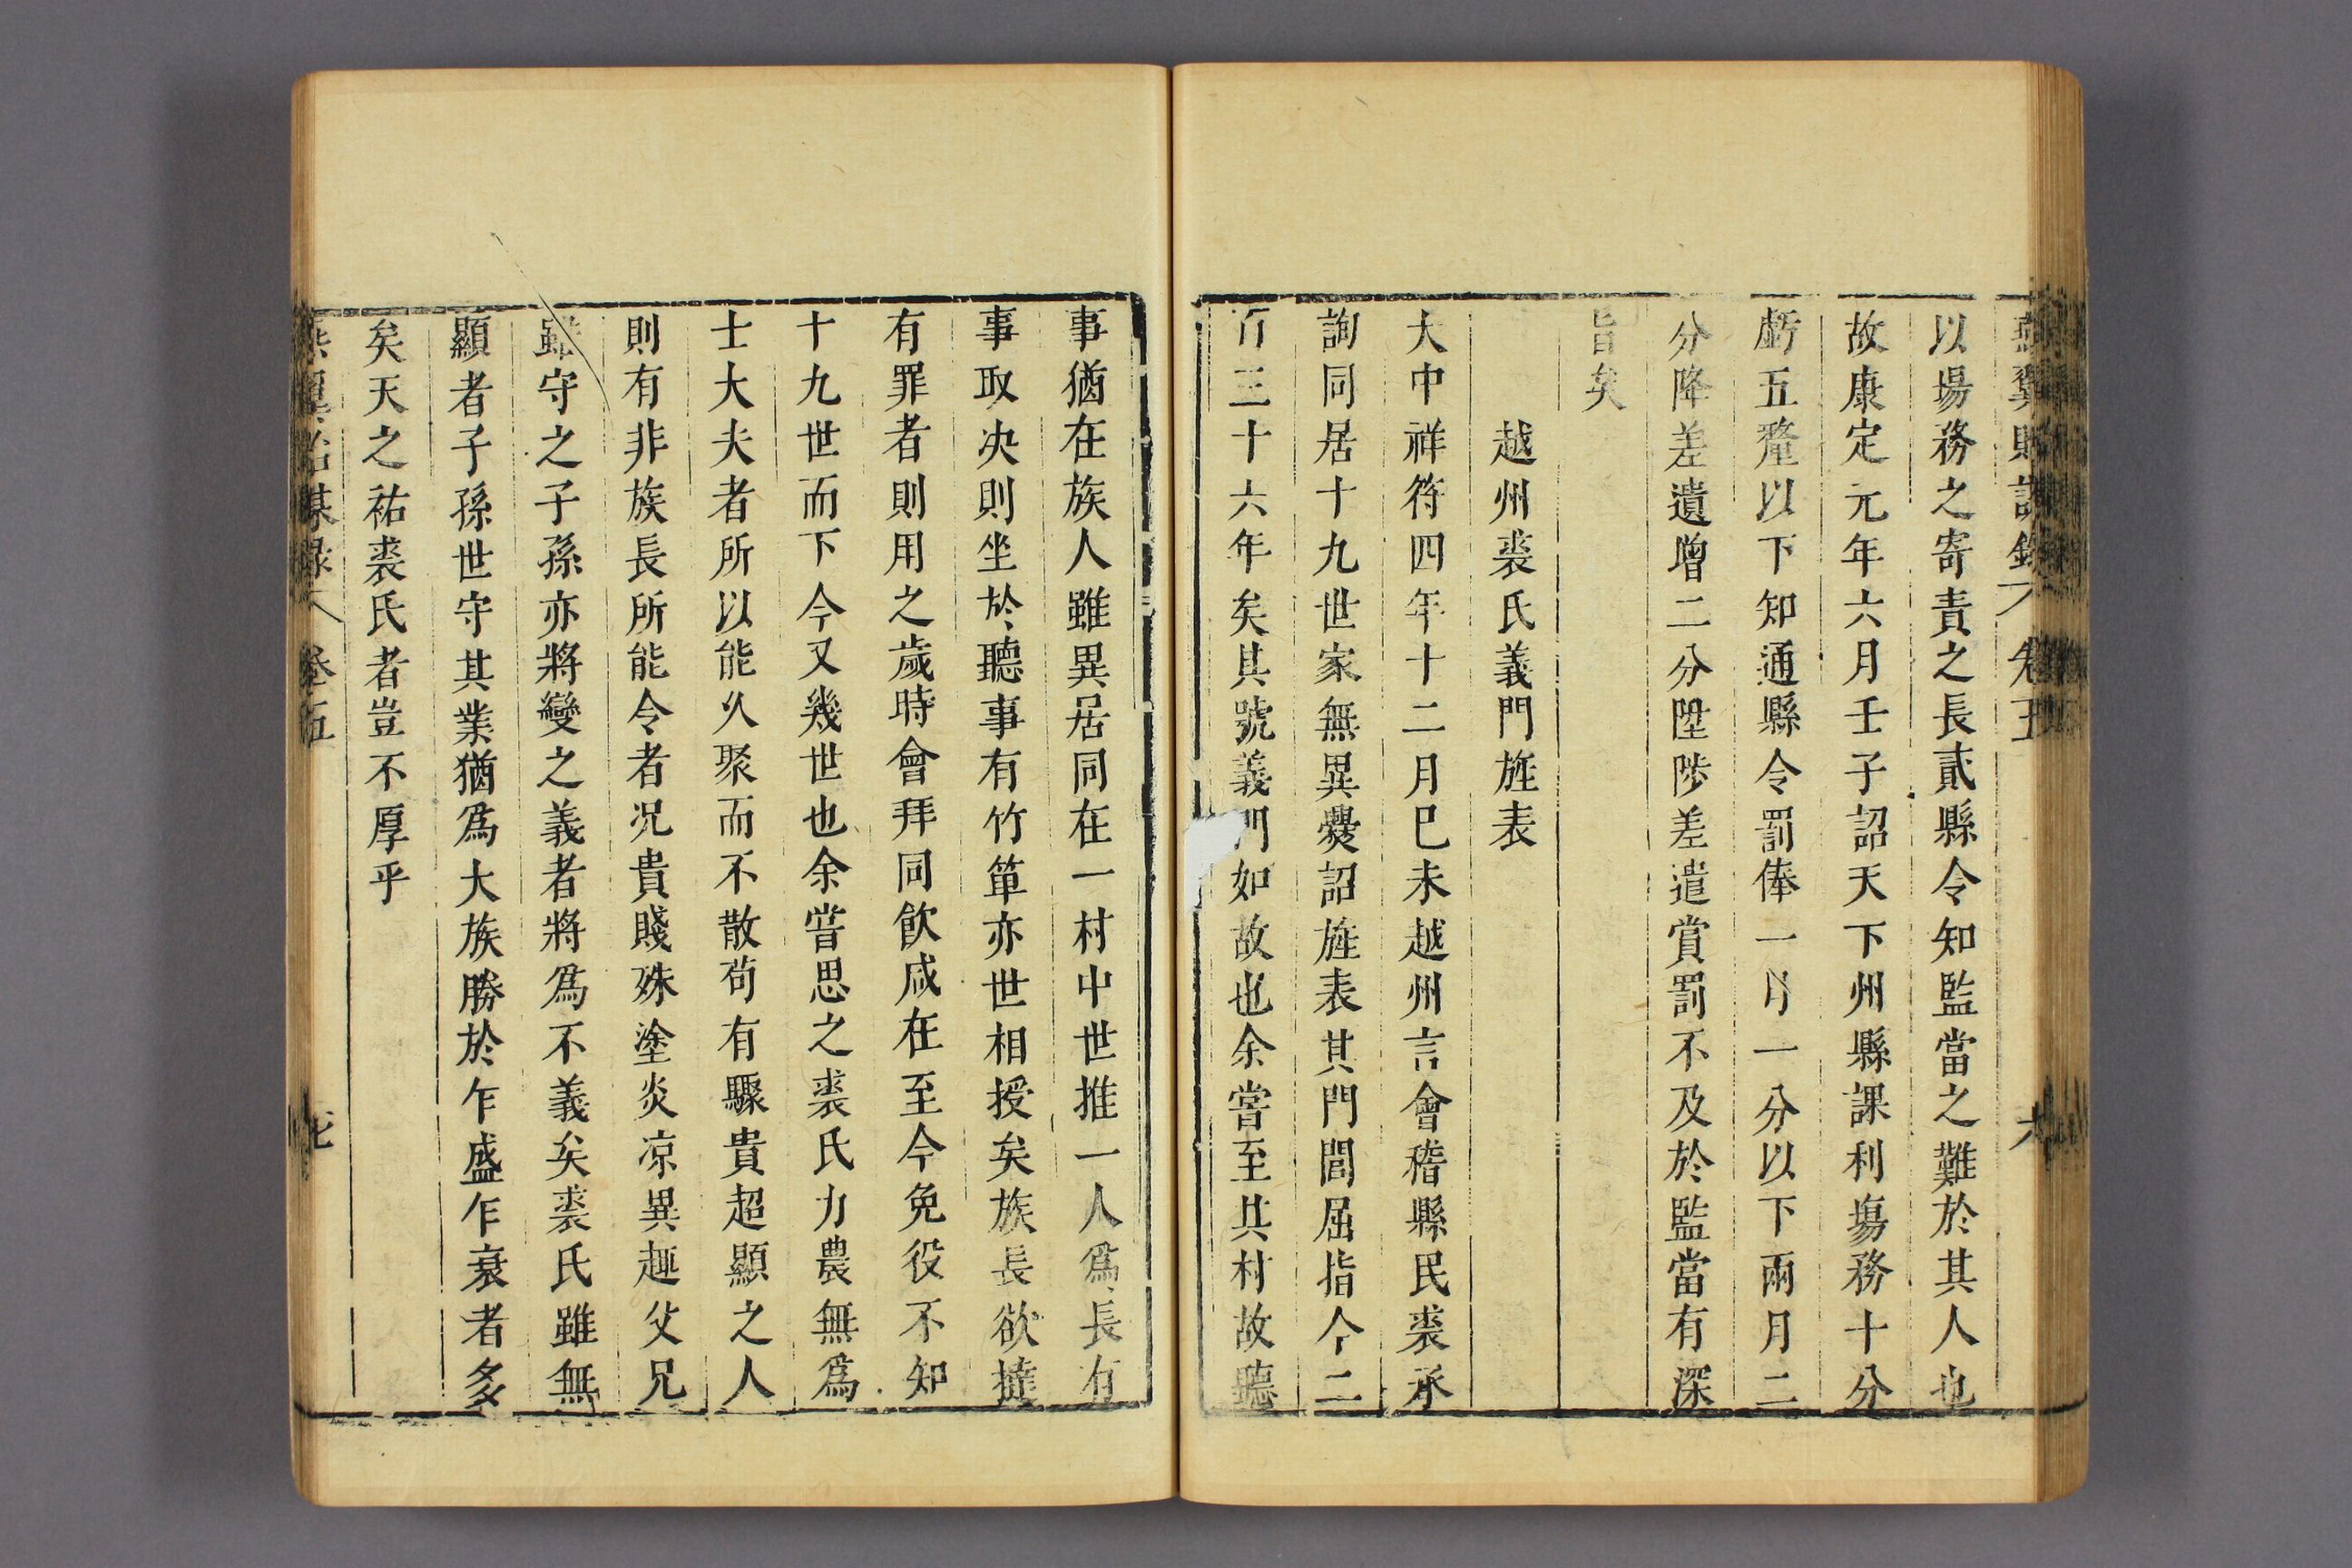 燕翼貽謀錄 卷五 六
以場務之寄責之長貳縣令知監當之難於其人也
故康定元年六月壬子詔天下州縣課利塲務十分
虧五釐以下知通縣令罰俸一月一分以下兩月二
分降差遣增二分陞陟差遣賞罰不及於監當有深
旨矣
越州裘氏義門旌表
大中祥符四年十二月巳未越州言會稽縣民裘承
詢同居十九世家無異爨詔旌表其門閭屈指今二
百三十六年矣其號義門如故也余嘗至其村故聽
事猶在族人雖異居同在一村中世推一人爲長有
事取决則坐於聽事有竹箄亦世相授矣族長欲撻
有罪者則用之歲時會拜同飲咸在至今免役不知
十九世而下今又幾世也余嘗思之裘氏力農無爲
士大夫者所以能久聚而不散苟有驟貴超顯之人
則有非族長所能令者况貴賤殊塗炎凉異趣父兄
雖守之子孫亦將變之義者將爲不義矣裘氏雖無
顯者子孫世守其業猶爲大族勝於乍盛乍衰者多
矣天之祐裘氏者豈不厚乎
燕翼貽謀録 卷五